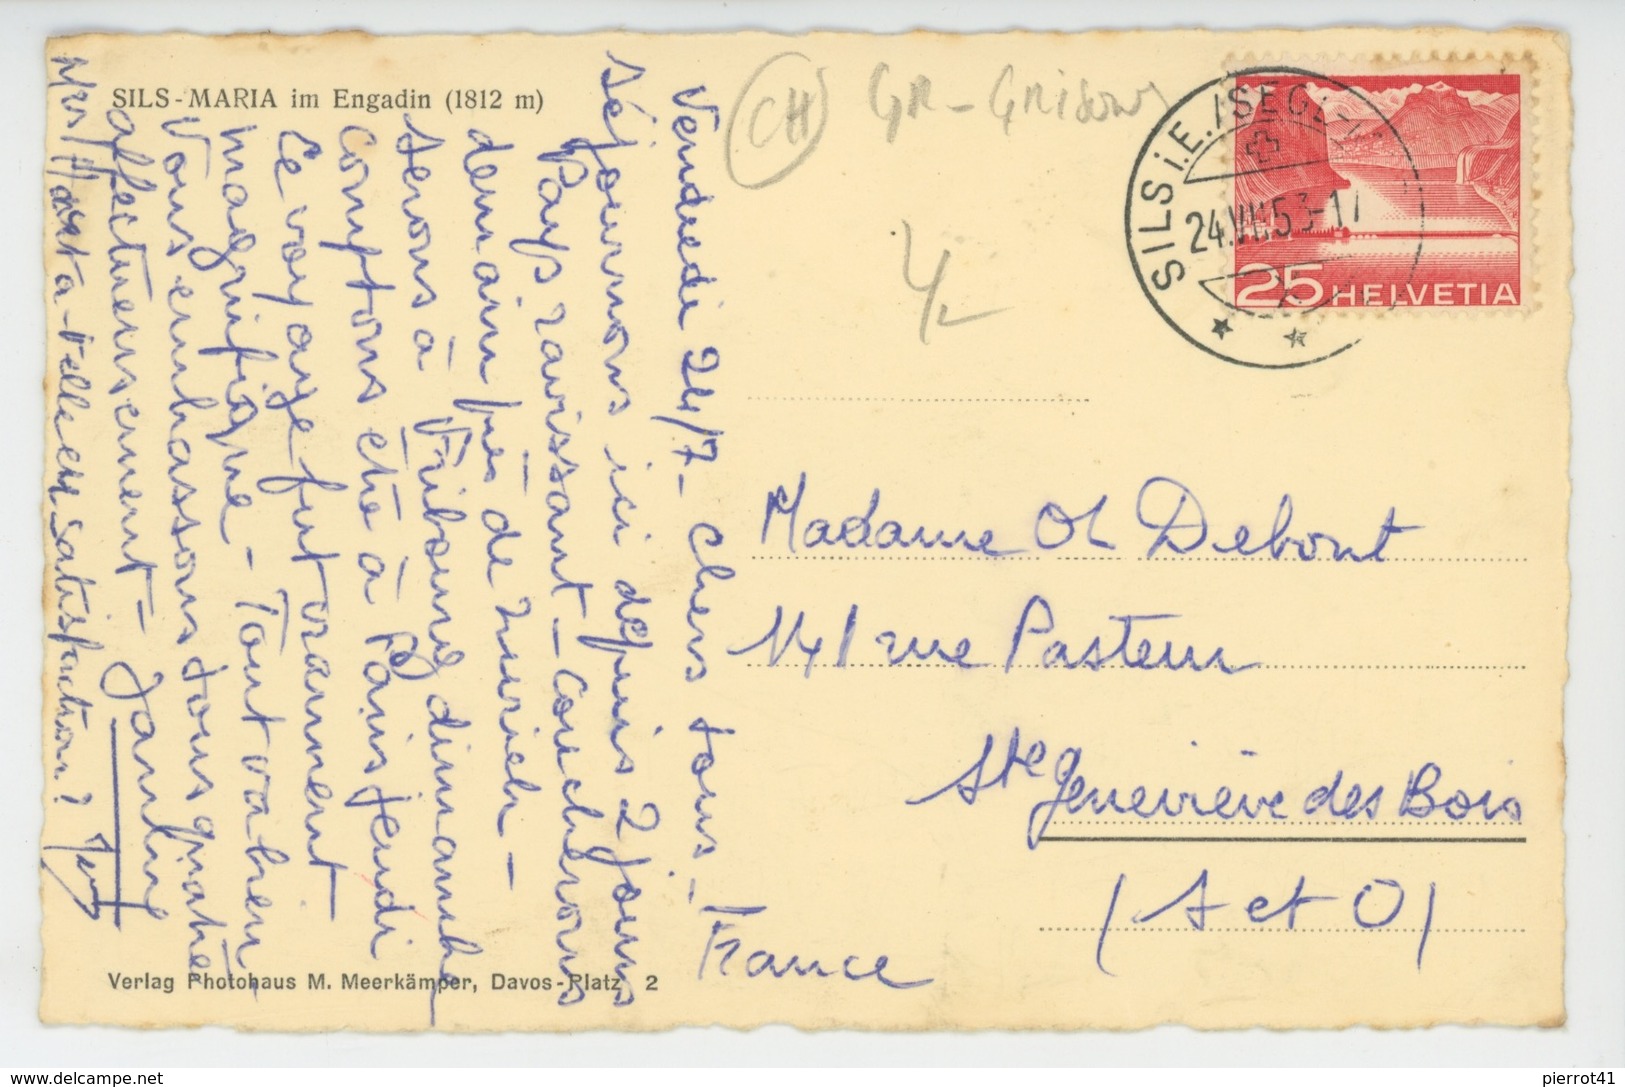 SILS-MARIA im Engadin (1812 m)
Vendredi 24/7 - Chers tous -
Séjournons ici depuis 2 jours
Pays ravissant - coucherons
demain près de Zurich -
serons à Fribourg dimanche
comptons être à Paris jeudi
Ce voyage fut vraiment
magnifique - Tout va bien -
Vous embrassons tous quatre
affectueusement - Janine
Marta - t-elle satisfaction ?
Verlag Photohaus M. Meerkämper, Davos-Platz 2
CH
GR - GRISONS
SILS i.E./SEGL-
24.VII.53-17
25 HELVETIA
Madame Debont
141 rue Pasteur
Ste Geneviève des Bois
(S et O)
France
delcampe.net
pierrot41